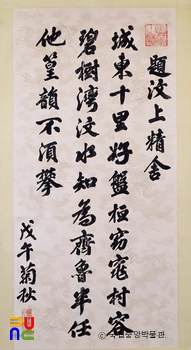 題汶上精舍
城東十里好盤桓窈窕村容
碧樹灣汶水知為齊魯半任
他篁韻不須攀
戊午菊秋
국립중앙박물관